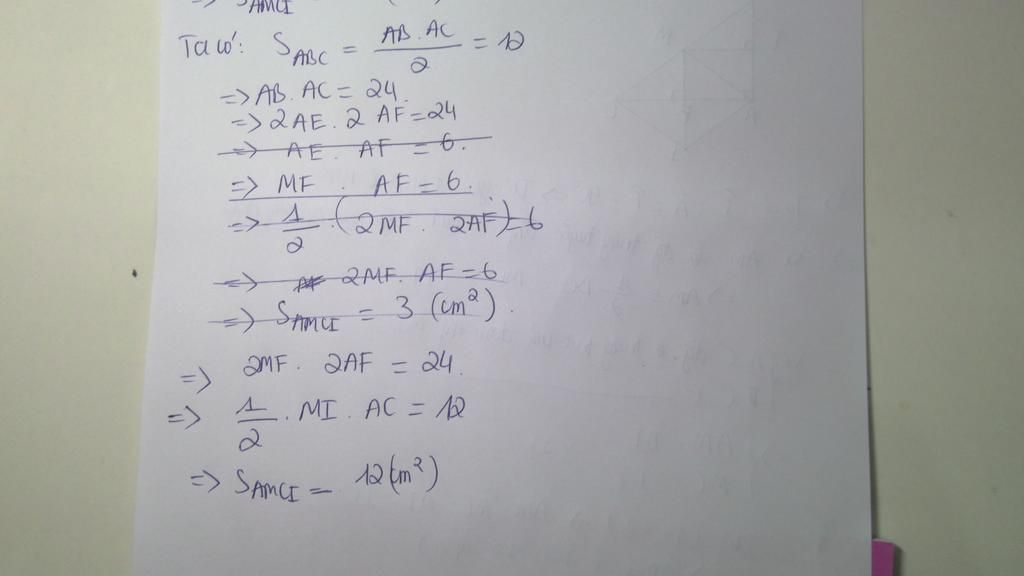 => S_AMCI
Ta có: S_ABC = AB.AC/2 = 12
=> AB. AC = 24.
=> 2AE. 2 AF = 24
=> AE. AF = 6.
=> MF. AF = 6.
=> 1/2 . (2MF. 2AF) = 6
=> 2MF. AF = 6
=> S_AMCI = 3 (cm²).
=> 2MF. 2AF = 24.
=> 1/2 . MI. AC = 12
=> S_AMCI = 12 (cm²)